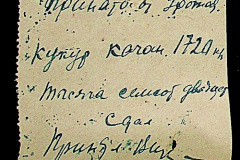 Принято от
кукур качан. 1720 кг
тысяча семсот двадцать
сдал
Принял